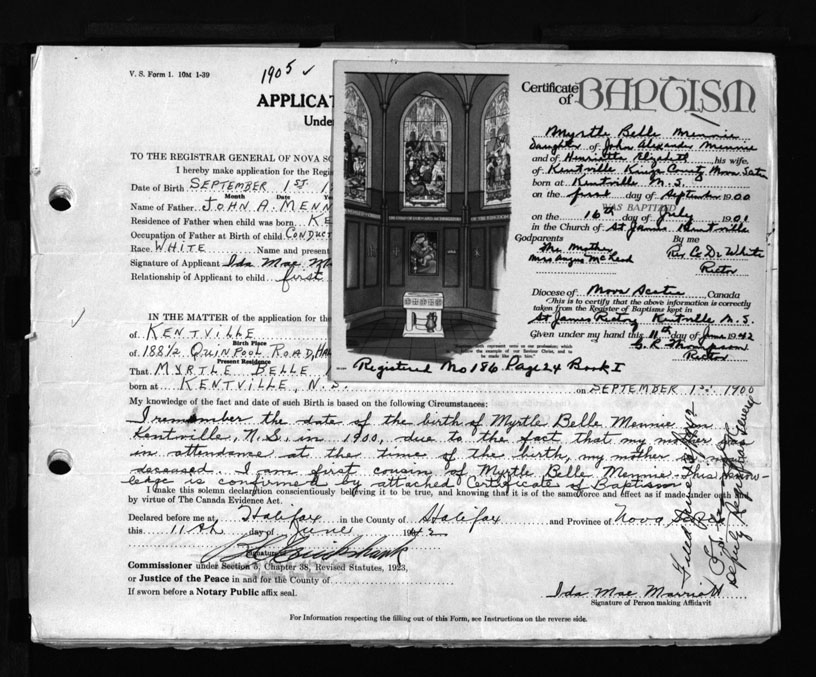 V. S. Form 1. 10M 1-39
1905 ✓
APPLICAT
Unde
TO THE REGISTRAR GENERAL OF NOVA SC
I hereby make application for the Regis
Date of Birth SEPTEMBER 1ST 1
Month Date Ye
Name of Father JOHN A. MENN
Residence of Father when child was born KE
Occupation of Father at Birth of child CONDUCT
Race WHITE Name and present
Signature of Applicant Ida Mae Ma
Relationship of Applicant to child first
IN THE MATTER of the application for the
of KENTVILLE
Birth Place
of 188½ QUINPOOL ROAD, HAL
Present Residence
That MYRTLE BELLE
born at KENTVILLE, N.S. on SEPTEMBER 1st 1900
My knowledge of the fact and date of such Birth is based on the following Circumstances:
I remember the date of the birth of Myrtle Belle Mennie in
Kentville, N.S. in 1900, due to the fact that my mother
in attendance at the time of the birth, my mother
deceased. I am first cousin of Myrtle Belle Mennie. This know-
ledge is confirmed by attached Certificate of Baptism
I make this solemn declaration conscientiously believing it to be true, and knowing that it is of the same force and effect as if made under oath
by virtue of The Canada Evidence Act.
Declared before me at Halifax in the County of Halifax and Province of Nova
this 11th day of June 1942
Signature of
Commissioner under Section 5, Chapter 38, Revised Statutes, 1923,
or Justice of the Peace in and for the County of
If sworn before a Notary Public affix seal.
Ida Mae Marriott
Signature of Person making Affidavit
For Information respecting the filling out of this Form, see Instructions on the reverse side.
Filed
Deputy Registrar General
Certificate of BAPTISM
Myrtle Belle Mennie
Daughter of John Alexander Mennie
and of Henrietta Elizabeth, his wife.
of Kentville Kings County Nova Scotia
born at Kentville N.S.
on the first day of September 1900
WAS BAPTIZED
on the 16th day of July 1901
in the Church of St James Kentville
Godparents By me
The Mother Rev Ce De White
Mrs Angus McLeod Rector
Diocese of Nova Scotia, Canada
This is to certify that the above information is correctly
taken from the Register of Baptisms kept in
St James Rectory Kentville N.S.
Given under my hand this 11th day of June 1942
C. R. Thompson
Rector
represent unto us our profession; which
follow the example of our Saviour Christ, and to
be made like unto him."
Registered No 186 Page 24 Book I